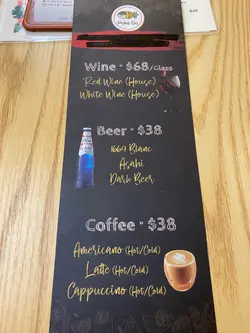 Poke Go
Wine • $68/Glass
Red Wine (House)
White Wine (House)
Beer • $38
1664 Blanc
Asahi
Dark Beer
Coffee • $38
Americano (Hot/Cold)
Latte (Hot/Cold)
Cappuccino (Hot/Cold)